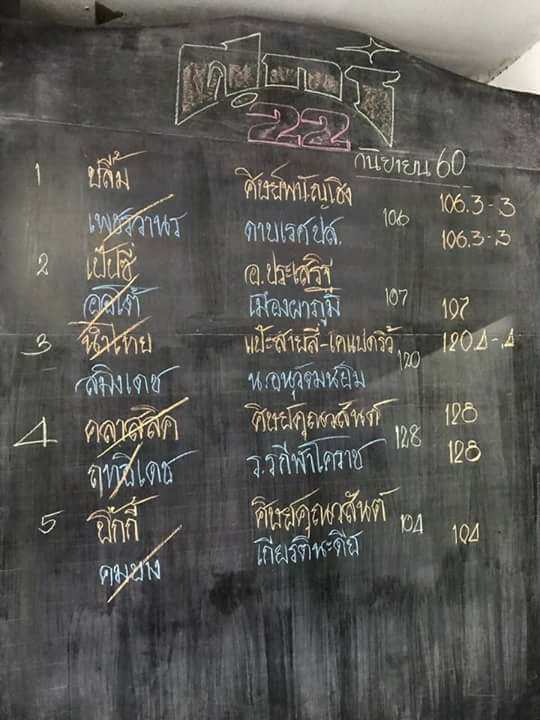 ศึกบูชา
22
กันยายน 60
1 ปลื้ม ศิษย์พนัญเชิง 106 106.3-.3
เพชรวานร ดาบเรศปส. 106.3-.3
2 เป๊ปซี่ อ.ประเสริฐ
ออโต้ เมืองผาภูมิ 107 107
3 น้ำไทย แป๊ะสายสี-เคแปดริ้ว 120 120.4-.4
สมิงเดช น.อนุวัฒน์ยิม
4 คลาสสิค ศิษย์คุณวสันต์ 128 128
ฤทธิเดช ร.รกีฬาโคราช 128
5 ยักกี้ ศิษย์คุณวสันต์ 104 104
คมบาง เกียรตินะดีย์